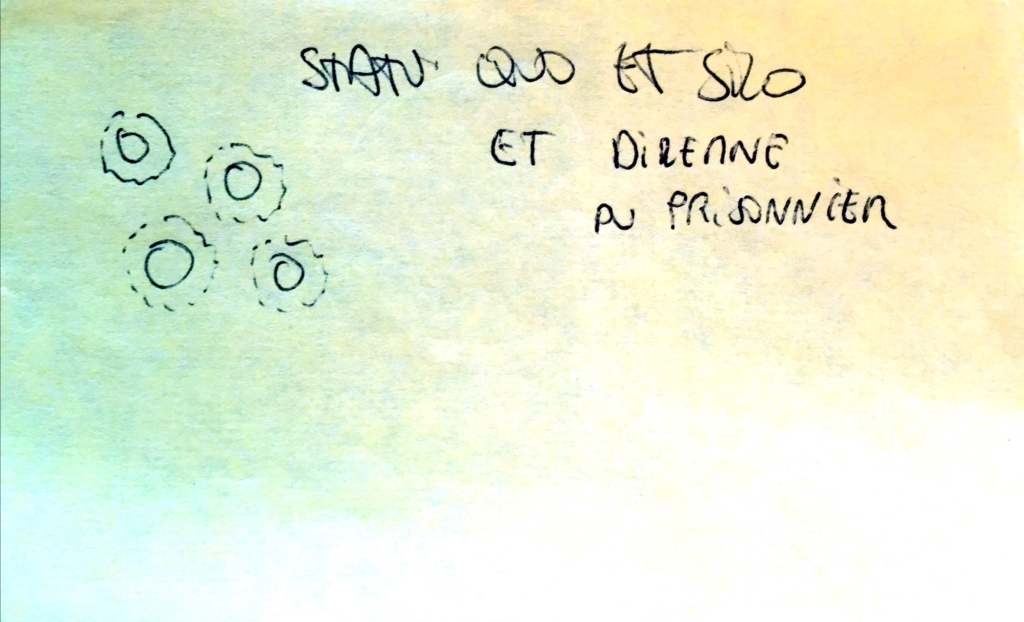 STATU QUO ET SILO
ET DILEMME
DU PRISONNIER